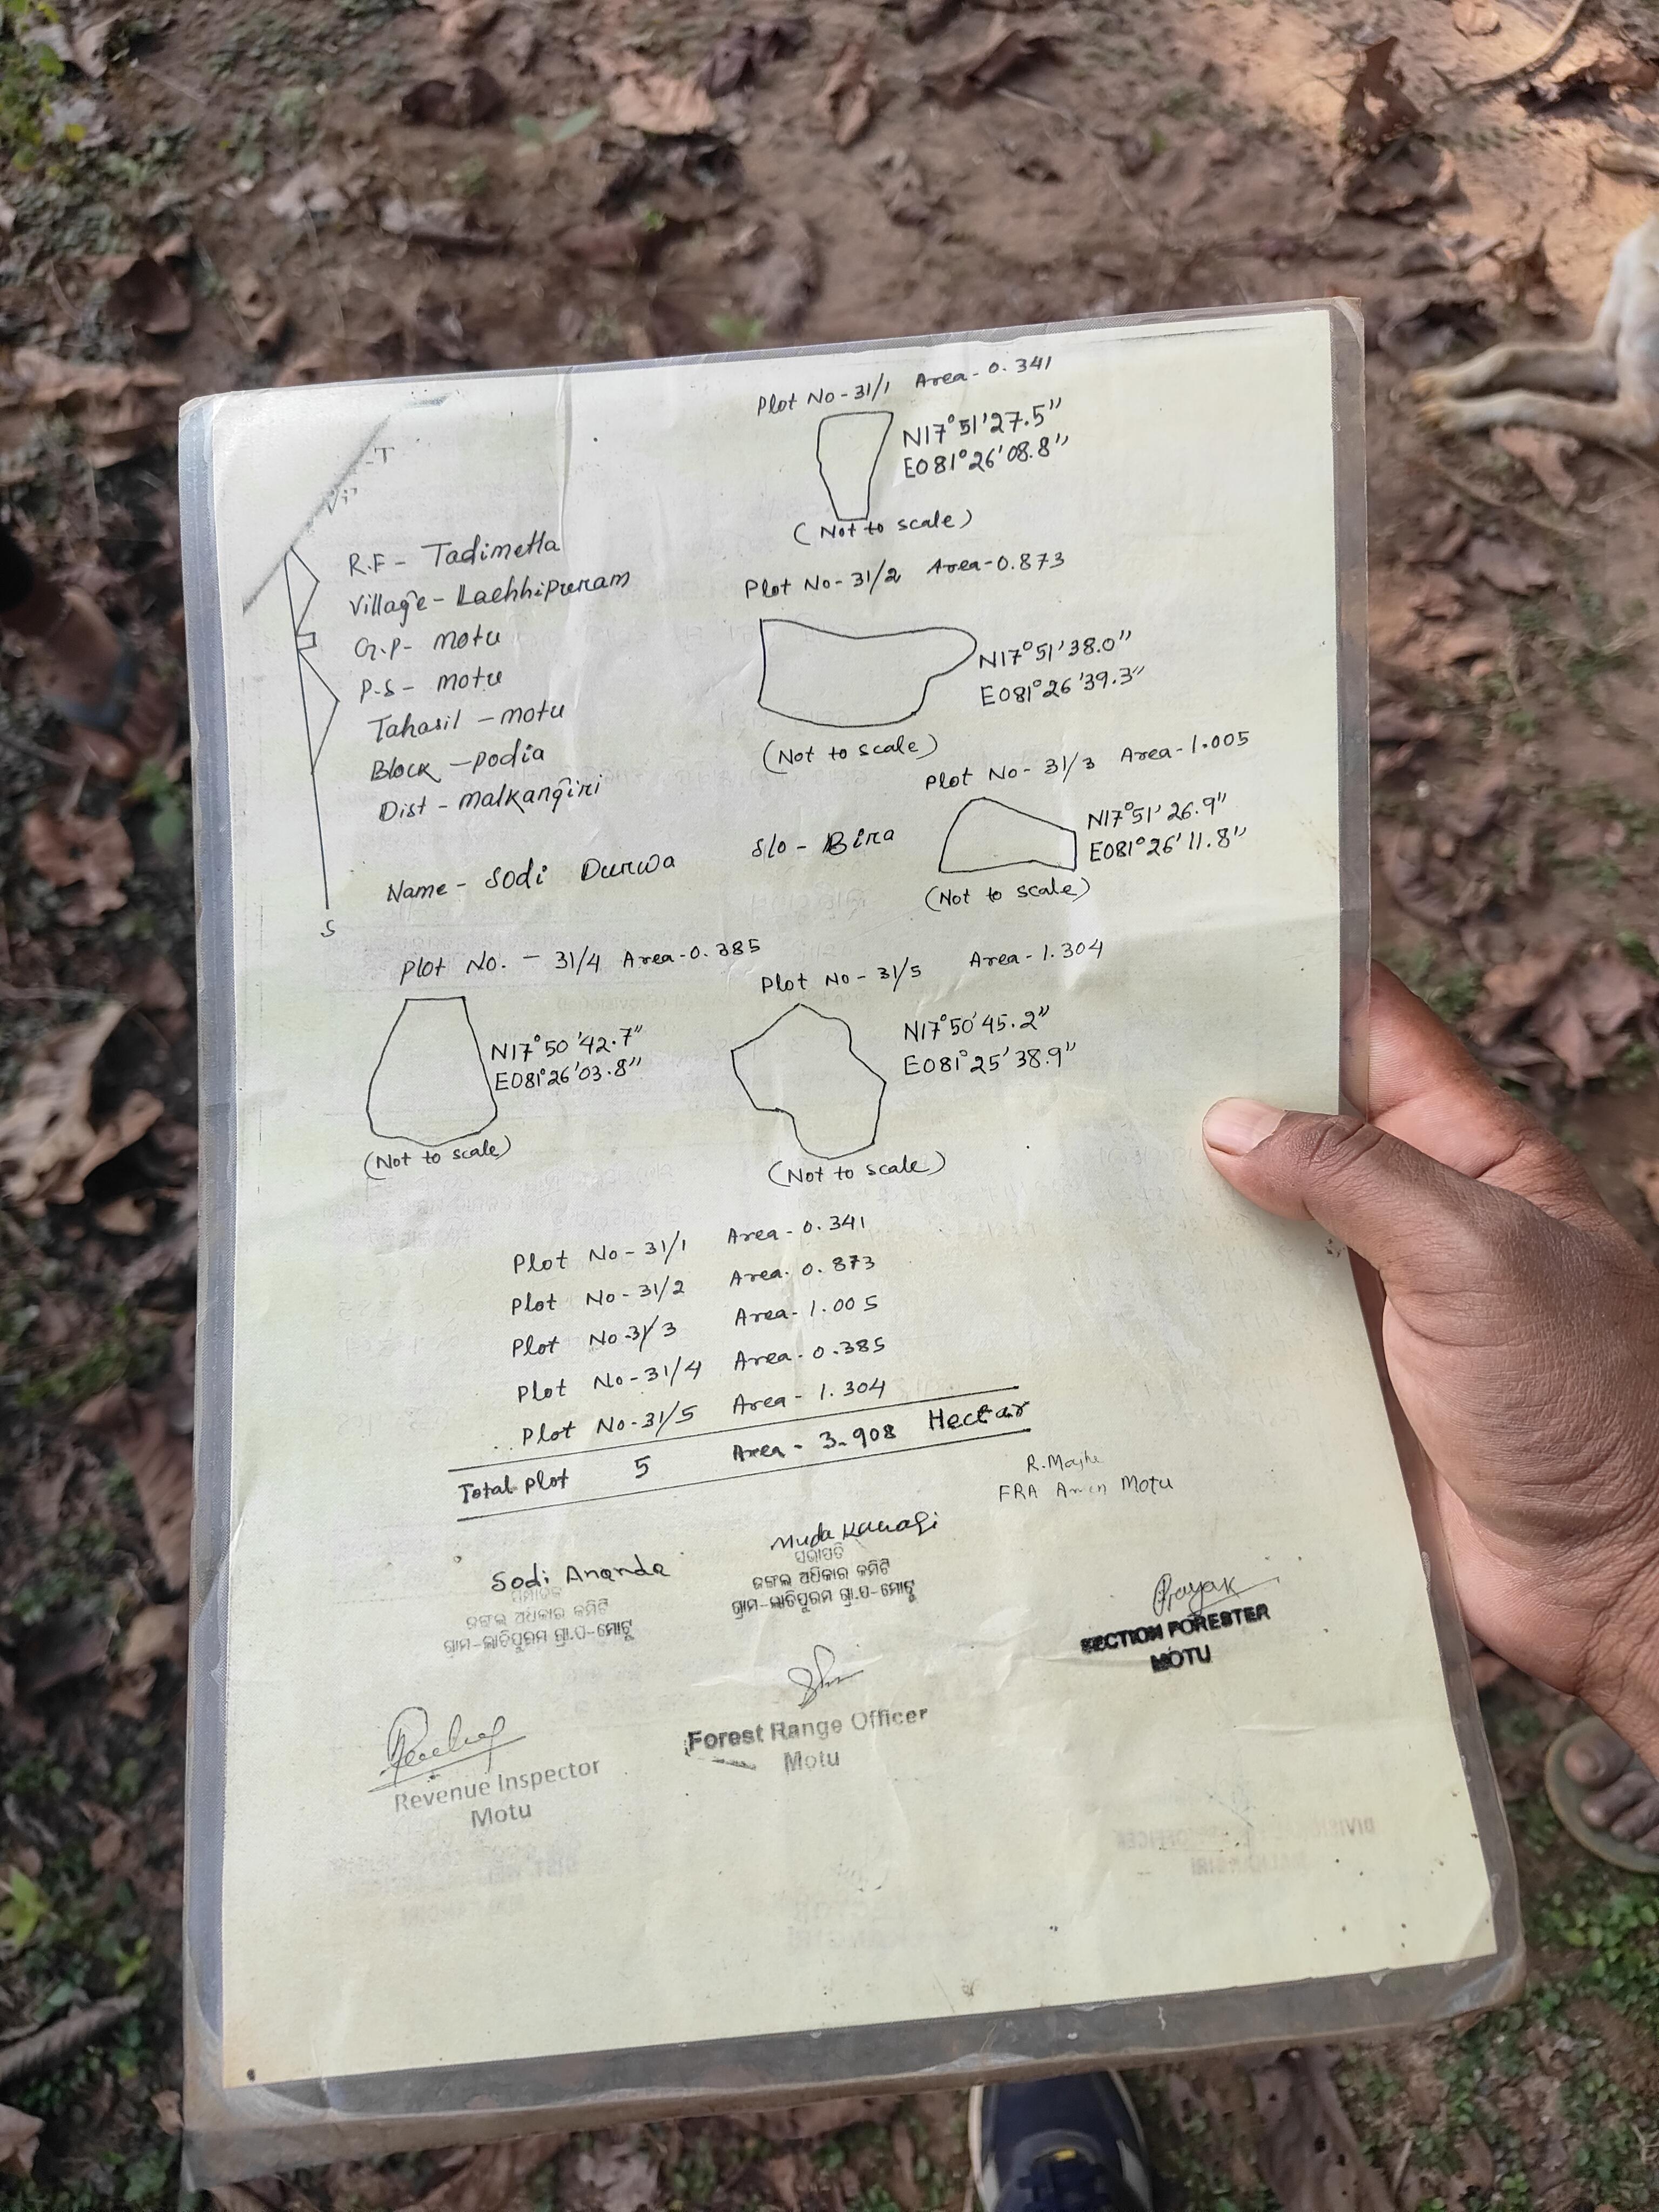 Plot No-31/1 Area-0.341
N17°51'27.5"
E081°26'08.8"
(Not to scale)
R.F- Tadimetla
Village- Lachhipuram
G.P- Motu
P.S- Motu
Tahasil - Motu
Block - Podia
Dist - Malkangiri
Plot No-31/2 Area-0.873
N17°51'38.0"
E081°26'39.3"
(Not to scale)
Plot No-31/3 Area-1.005
N17°51'26.9"
E081°26'11.8"
(Not to scale)
Name- Sodi Durwa S/o- Bira
S
Plot No. - 31/4 Area-0.385
N17°50'42.7"
E081°26'03.8"
(Not to scale)
Plot No-31/5 Area-1.304
N17°50'45.2"
E081°25'38.9"
(Not to scale)
Plot No-31/1 Area-0.341
Plot No-31/2 Area-0.873
Plot No-31/3 Area-1.005
Plot No-31/4 Area-0.385
Plot No-31/5 Area-1.304
Total Plot 5 Area-3.908 Hectar
FRA Motu
Sodi Ananda
ଜଙ୍ଗଲ ଅଧିକାର କମିଟି
ଗ୍ରାମ-ଲାଚିପୁରମ ଗ୍ରା.ପ-ମୋଟୁ
Muda
ସଭାପତି
ଜଙ୍ଗଲ ଅଧିକାର କମିଟି
ଗ୍ରାମ-ଲାଚିପୁରମ ଗ୍ରା.ପ-ମୋଟୁ
SECTION FORESTER
MOTU
Revenue Inspector
Motu
Forest Range Officer
Motu